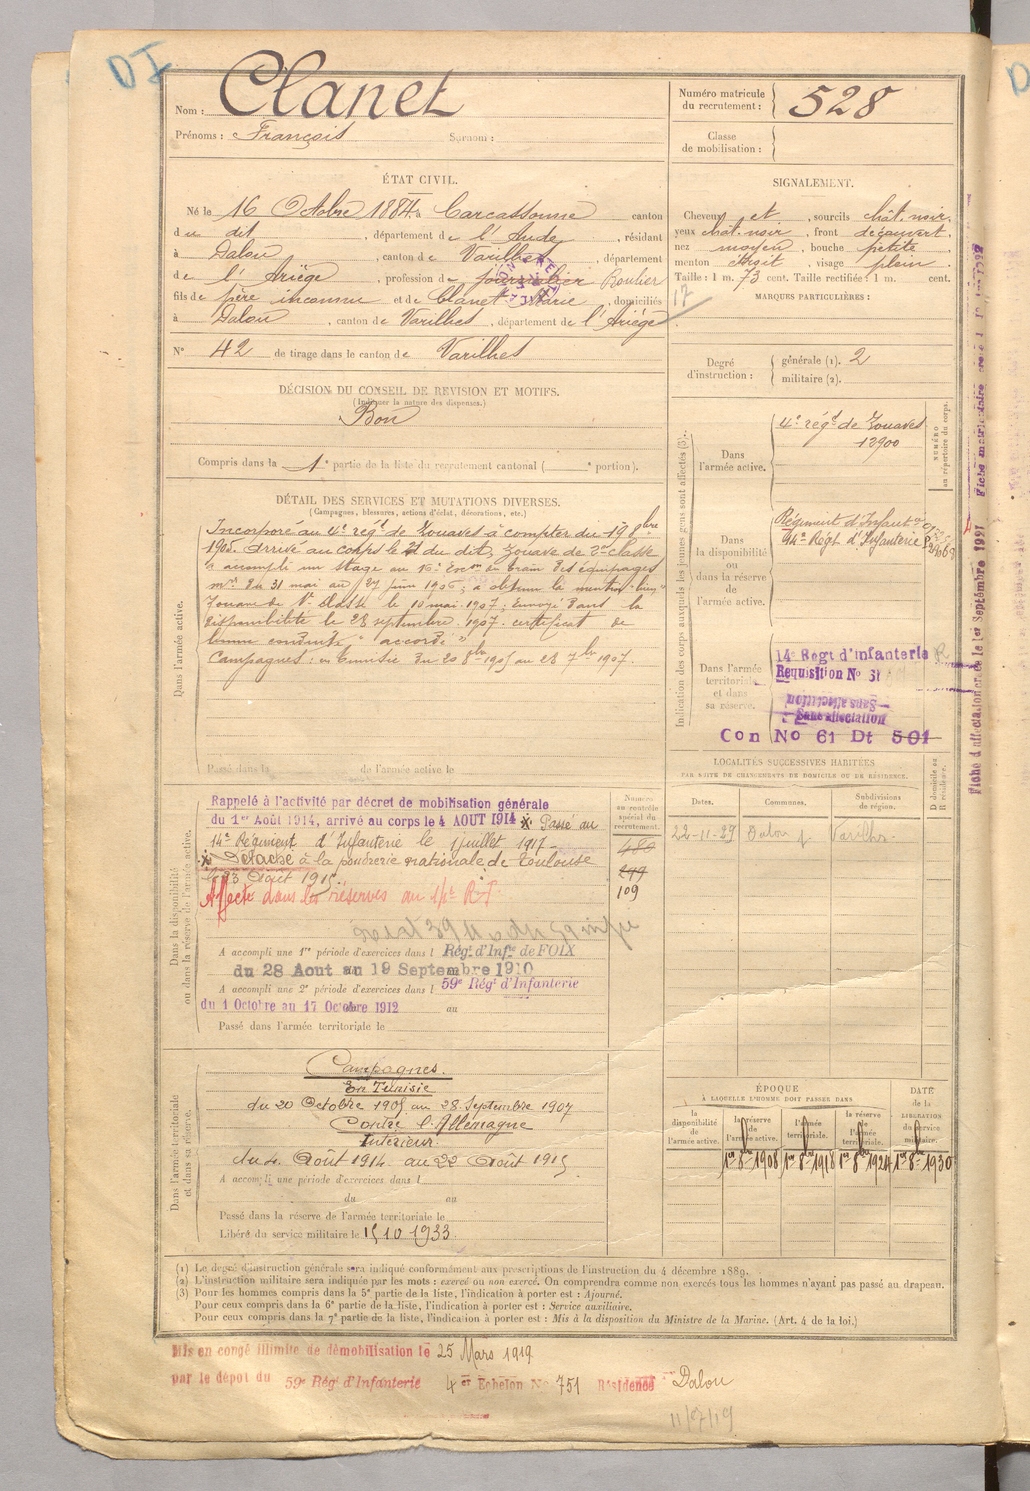 DI
Nom : Clanet
Prénoms : François Surnom :
Numéro matricule du recrutement : 528
Classe de mobilisation :
ÉTAT CIVIL.
Né le 16 Octobre 1884 à Carcassonne canton
du dit , département de l'Aude , résidant
à Dalou , canton de Varilhes , département
de l'Ariège , profession de journalier Roulier
fils de père inconnu et de Clanet Marie , domiciliés
à Dalou , canton de Varilhes , département de l'Ariège
N° 42 de tirage dans le canton de Varilhes
SIGNALEMENT.
Cheveux et , sourcils chât. noir.
yeux chât. noir , front découvert.
nez moyen , bouche petite
menton droit , visage plein
Taille : 1 m. 73 cent. Taille rectifiée : 1 m. cent.
MARQUES PARTICULIÈRES :
17
Degré d'instruction : générale (1). 2
militaire (2).
DÉCISION DU CONSEIL DE REVISION ET MOTIFS.
(Indiquer la nature des dispenses.)
Bon
Compris dans la 1e partie de la liste du recrutement cantonal ( e portion).
DÉTAIL DES SERVICES ET MUTATIONS DIVERSES.
(Campagnes, blessures, actions d'éclat, décorations, etc.)
Dans l'armée active.
Incorporé au 4e régt de Zouaves à compter du 19 8bre
1905. Arrivé au corps le 21 du dit, Zouave de 2e classe
a accompli un stage au train des équipages
mres du 31 mai au 27 juin 1906, a obtenu la mention "bien"
Zouave de 1e classe le 10 mai 1907, Envoyé dans la
disponibilité le 28 septembre 1907. certificat de
bonne conduite "accordé"
Campagnes : en Tunisie du 20 8bre 1905 au 28 7bre 1907.
Passé dans la de l'armée active le
Indication des corps auxquels les jeunes gens sont affectés (3).
NUMÉRO au répertoire du corps.
Dans l'armée active.
4e régt de Zouaves
12900
Dans la disponibilité ou dans la réserve de l'armée active.
Régiment d'Infant
14e Regt d'Infanterie
Dans l'armée territoriale et dans sa réserve.
14e Regt d'Infanterie
Requisition No 31
Sans affectation
Sans affectation
Con No 61 Dt 501
Fiche d'affectation créée le 1er Septembre 1921
Dans la disponibilité ou dans la réserve de l'armée active.
Rappelé à l'activité par décret de mobilisation générale
du 1er Août 1914, arrivé au corps le 4 AOUT 1914 Passé au
14e Régiment d'Infanterie le 1 juillet 1917
Détaché à la poudrerie nationale de Toulouse
le 23 Août 1915
Affecté dans les réserves au 14e R.I.
A accompli une 1re période d'exercices dans l Régt d'Infie de FOIX
du 28 Aout au 19 Septembre 1910
A accompli une 2e période d'exercices dans l 59e Régt d'Infanterie
du 1 Octobre au 17 Octobre 1912 au
Passé dans l'armée territoriale le
Numéro au contrôle spécial du recrutement.
480
109
LOCALITÉS SUCCESSIVES HABITÉES
PAR SUITE DE CHANGEMENTS DE DOMICILE OU DE RÉSIDENCE.
Dates. Communes. Subdivisions de région. D domicile ou R résidence.
22-11-29 Dalou Varilhes.
Dans l'armée territoriale et dans sa réserve.
Campagnes.
En Tunisie
du 20 Octobre 1905 au 28 Septembre 1907
Contre l'Allemagne
Intérieur.
du 4 Août 1914 au 22 Août 1915
A accompli une période d'exercices dans l
du au
Passé dans la réserve de l'armée territoriale le
Libéré du service militaire le 15 10 1933
ÉPOQUE
À LAQUELLE L'HOMME DOIT PASSER DANS
la disponibilité de l'armée active. la réserve de l'armée active. l'armée territoriale. la réserve de l'armée territoriale. DATE de la LIBÉRATION du service militaire.
1er 8bre 1908 1er 8bre 1918 1er 8bre 1924 1er 8bre 1930
(1) Le degré d'instruction générale sera indiqué conformément aux prescriptions de l'instruction du 4 décembre 1889.
(2) L'instruction militaire sera indiquée par les mots : exercé ou non exercé. On comprendra comme non exercés tous les hommes n'ayant pas passé au drapeau.
(3) Pour les hommes compris dans la 5e partie de la liste, l'indication à porter est : Ajourné.
Pour ceux compris dans la 6e partie de la liste, l'indication à porter est : Service auxiliaire.
Pour ceux compris dans la 7e partie de la liste, l'indication à porter est : Mis à la disposition du Ministre de la Marine. (Art. 4 de la loi.)
Mis en congé illimité de démobilisation le 25 Mars 1919
par le dépot du 59e Rég' d'Infanterie 4e Echelon No 751 Résidence Dalou
11/7/19